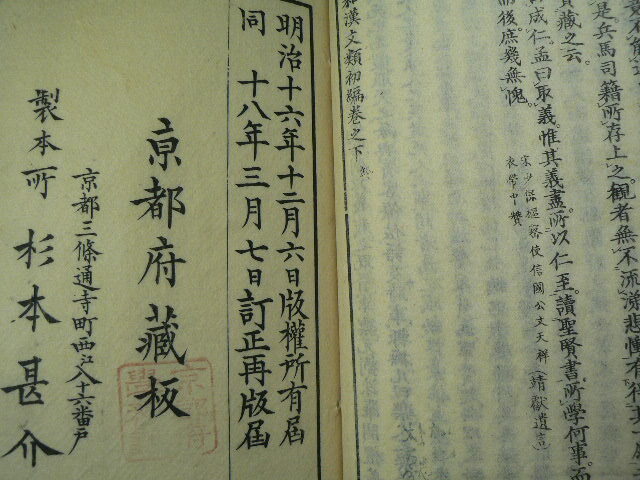 是。兵馬司籍所存上之。観者無不流涕悲慟有
藏之云。
成仁。孟曰取義。惟其義盡。所以仁至。讀聖賢書。所學何事。而
而後庶幾無愧。
衣帶中贊
宋少保樞密使信國公文天祥（靖獻遺言）
和漢文類初編卷之下
明治十六年十二月六日版權所有屆
同 十八年三月七日訂正再版屆
京都府藏板
京都三條通寺町西江入十六番戸
製本所 杉本甚介